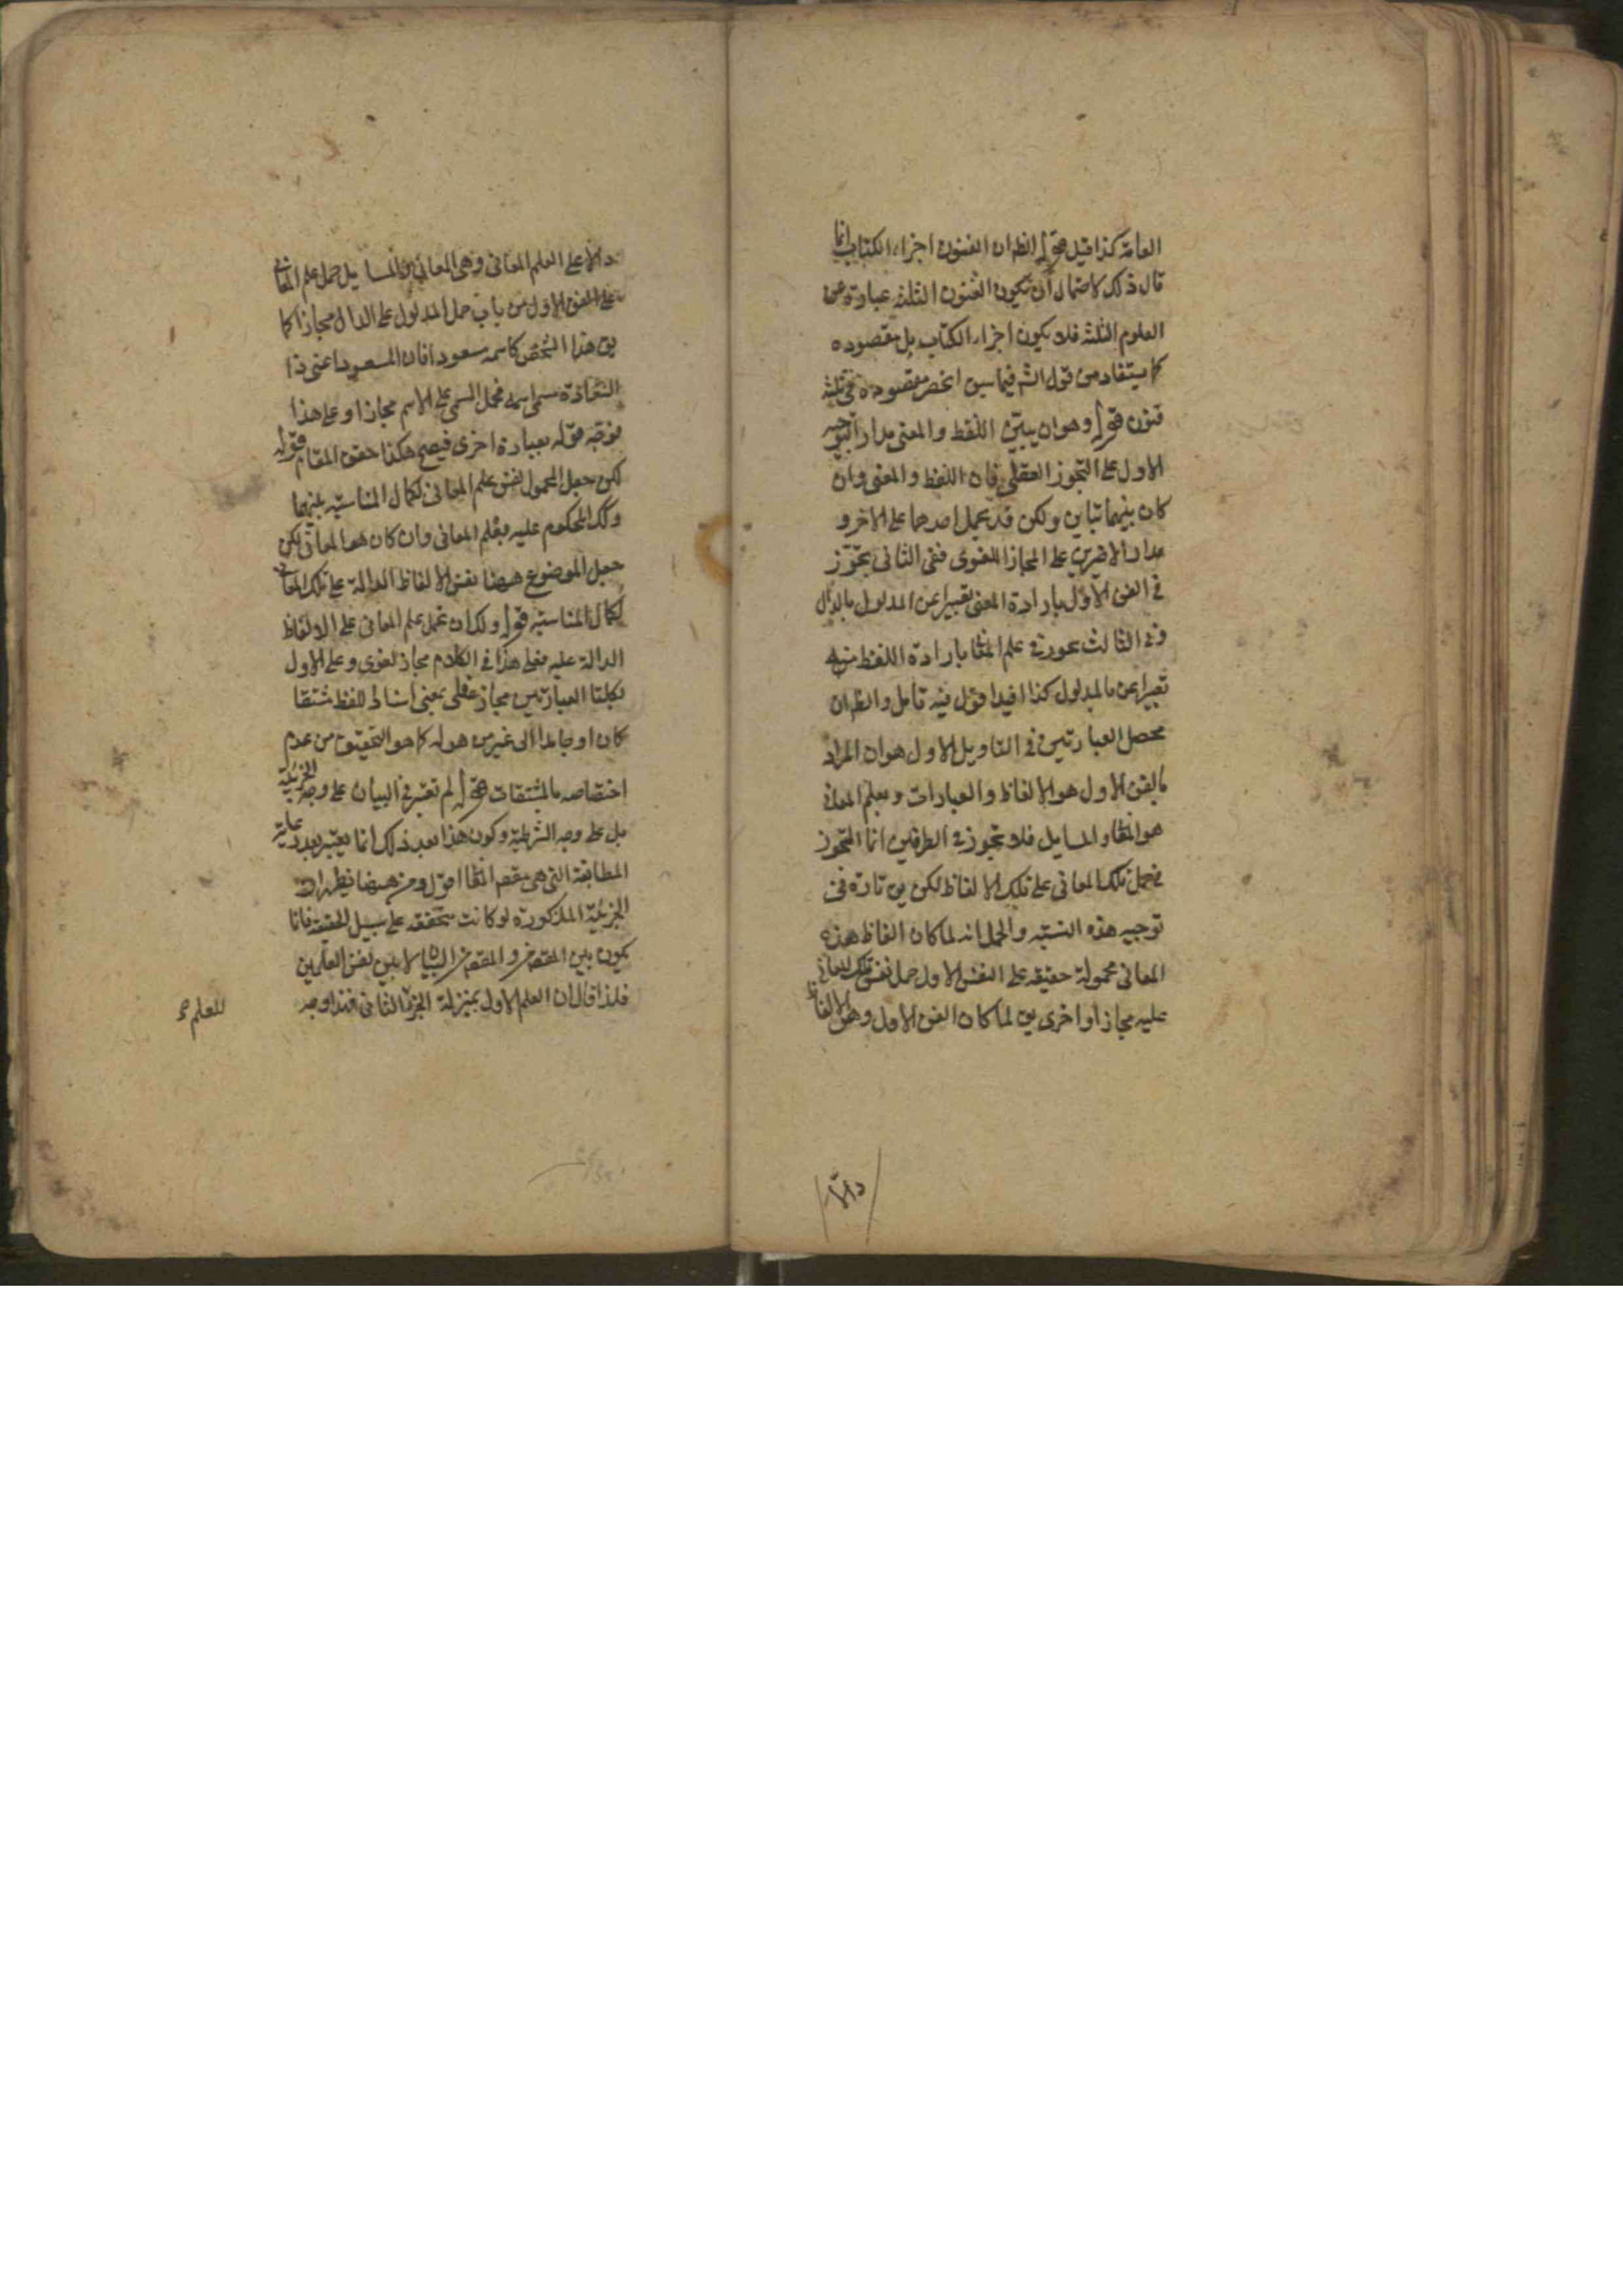 العامة كذا قيل قوله الظ ان الفنون اجزاء الكتاب انما
قال ذلك لاحتمال أن تكون الفنون الثلثة عبارة عن
العلوم الثلثة فلا يكون اجزاء الكتاب بل مقصوده
كما يستفاد من قول الش فيما سبق انحصر مقصوده في ثلثة
فنون قوله وهو ان يبتنى اللفظ والمعنى مدار التوجيه
الاول على التجوز العقلي فان اللفظ والمعنى وان
كان بينهما تباين ولكن قد يحمل احدهما على الاخر و
مدار الاخرين على المجاز اللغوى ففى الثانى تجوز
في الفن الأول بارادة المعنى تعبيرا عن المدلول بالدال
وفى الثالث تجوز في علم المعا بارادة اللفظ منه
تعبيرا عن بالمدلول كذا افيد اقول فيه تأمل والظ ان
محصل العبارتين في التاويل الاول هو ان المراد
بالفن الاول هو الالفاظ والعبارات وبعلم المعانى
هو المعا والمسايل فلا تجوز في الطرفين انما التجوز
في حمل تلك المعانى على تلك الالفاظ لكن يق تارة فى
توجيه هذه النسبة والحمل انه لما كان الفاظ هذه
المعانى محمولة حقيقه على الفن الاول حمل نفس تلك المعانى
عليه مجازا واخرى يق لما كان الفن الاول وهى الالفاظ
دالا
دالا على العلم المعانى وهى المعانى والمسايل حمل علم المعانى
على الفن الاول من باب حمل المدلول على الدال مجازا كما
يق هذا الشخص كاسمه مسعود افان المسعود اعنى ذا
السعادة مسمى اسمه فحمل المسمى على الاسم مجازا وعلى هذا
فوجه قوله بعبارة اخرى فيصح هكذا حقق المقام قوله
لكن جعل المحمول نفس علم المعانى لكمال المناسبة بينهما
وكك المحكوم عليه بعلم المعانى وان كان هو المعانى لكن
جعل الموضوع ههنا نفس الالفاظ الدالة على تلك المعانى
لكمال المناسبة قوله ولك ان تحمل علم المعانى على الالفاظ
الدالة عليه فعلى هذا في الكلام مجاز لغوى وعلى الاول
بكلتا العبارتين مجاز عقلى بمعنى اسناد اللفظ مشتقا
كان او جامدا الى غير من هو له كما هو التحقيق من عدم
اختصاصه بالمشتقات قوله لم تعتبر في البيان على وجه الجزئية
بل على وجه الشرطية وكون هذا بعد ذلك انما يعتبر بعد رعاية
المطابقة التى هى مقصد المعا اقول ومن ههنا يظهر ان
الجزئية المذكورة لو كانت متحققة على سبيل الحقيقة فانما
يكون بين المقصد من و المقصد من البيان لا بين نفس العلمين
فلذا قال ان العلم الاول بمنزلة الجزء الثانى فهذا وجه
للعلم